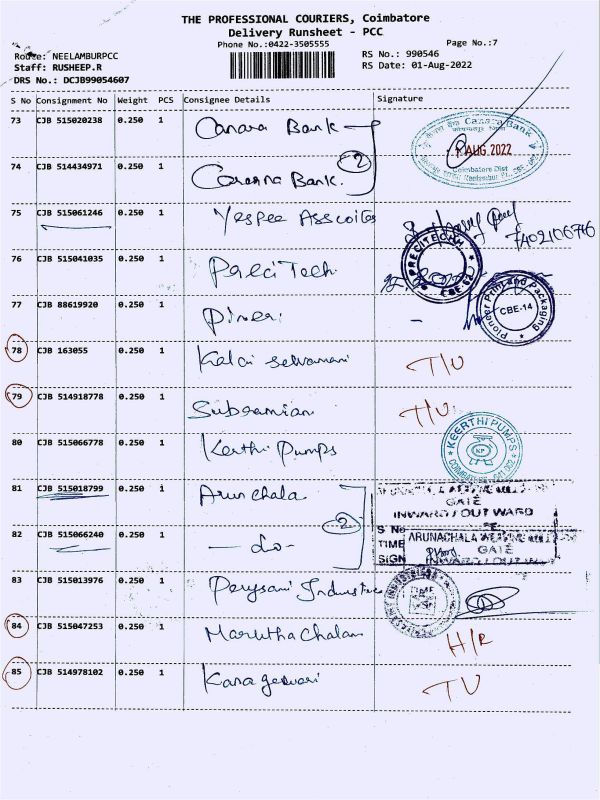 THE PROFESSIONAL COURIERS, Coimbatore
Delivery Runsheet - PCC
Phone No.:0422-3505555
Page No.:7
Route: NEELAMBURPCC
RS No.: 990546
Staff: RUSHEEP.R
RS Date: 01-Aug-2022
DRS No.: DCJB99054607
S No Consignment No Weight PCS Consignee Details Signature
73 CJB 515020238 0.250 1 Canara Bank
Canara Bank
AUG 2022
Coimbatore Dist
74 CJB 514434971 0.250 1 Canara Bank. 2
75 CJB 515061246 0.250 1 Yespee Asscoites
7402106746
76 CJB 515041035 0.250 1 Preci Tech
PRECITECHH
CBE-62
77 CJB 88619920 0.250 1 -
Pioneer Print and Packaging
CBE-14
78 CJB 163055 0.250 1 Kalai selvamani T/U
79 CJB 514918778 0.250 1 Subramian T/U
80 CJB 515066778 0.250 1 Kerthi Pumps
KEERTHI PUMPS
KP
81 CJB 515018799 0.250 1 Arunchala
GATE
INWARD / OUT WARD
82 CJB 515066240 0.250 1 - do - 2
S No
TIME
SIGN
ARUNACHALA WEAVING
GATE
INWARD / OUT WARD
83 CJB 515013976 0.250 1
84 CJB 515047253 0.250 1 Marutha Chalam H/R
85 CJB 514978102 0.250 1 TU